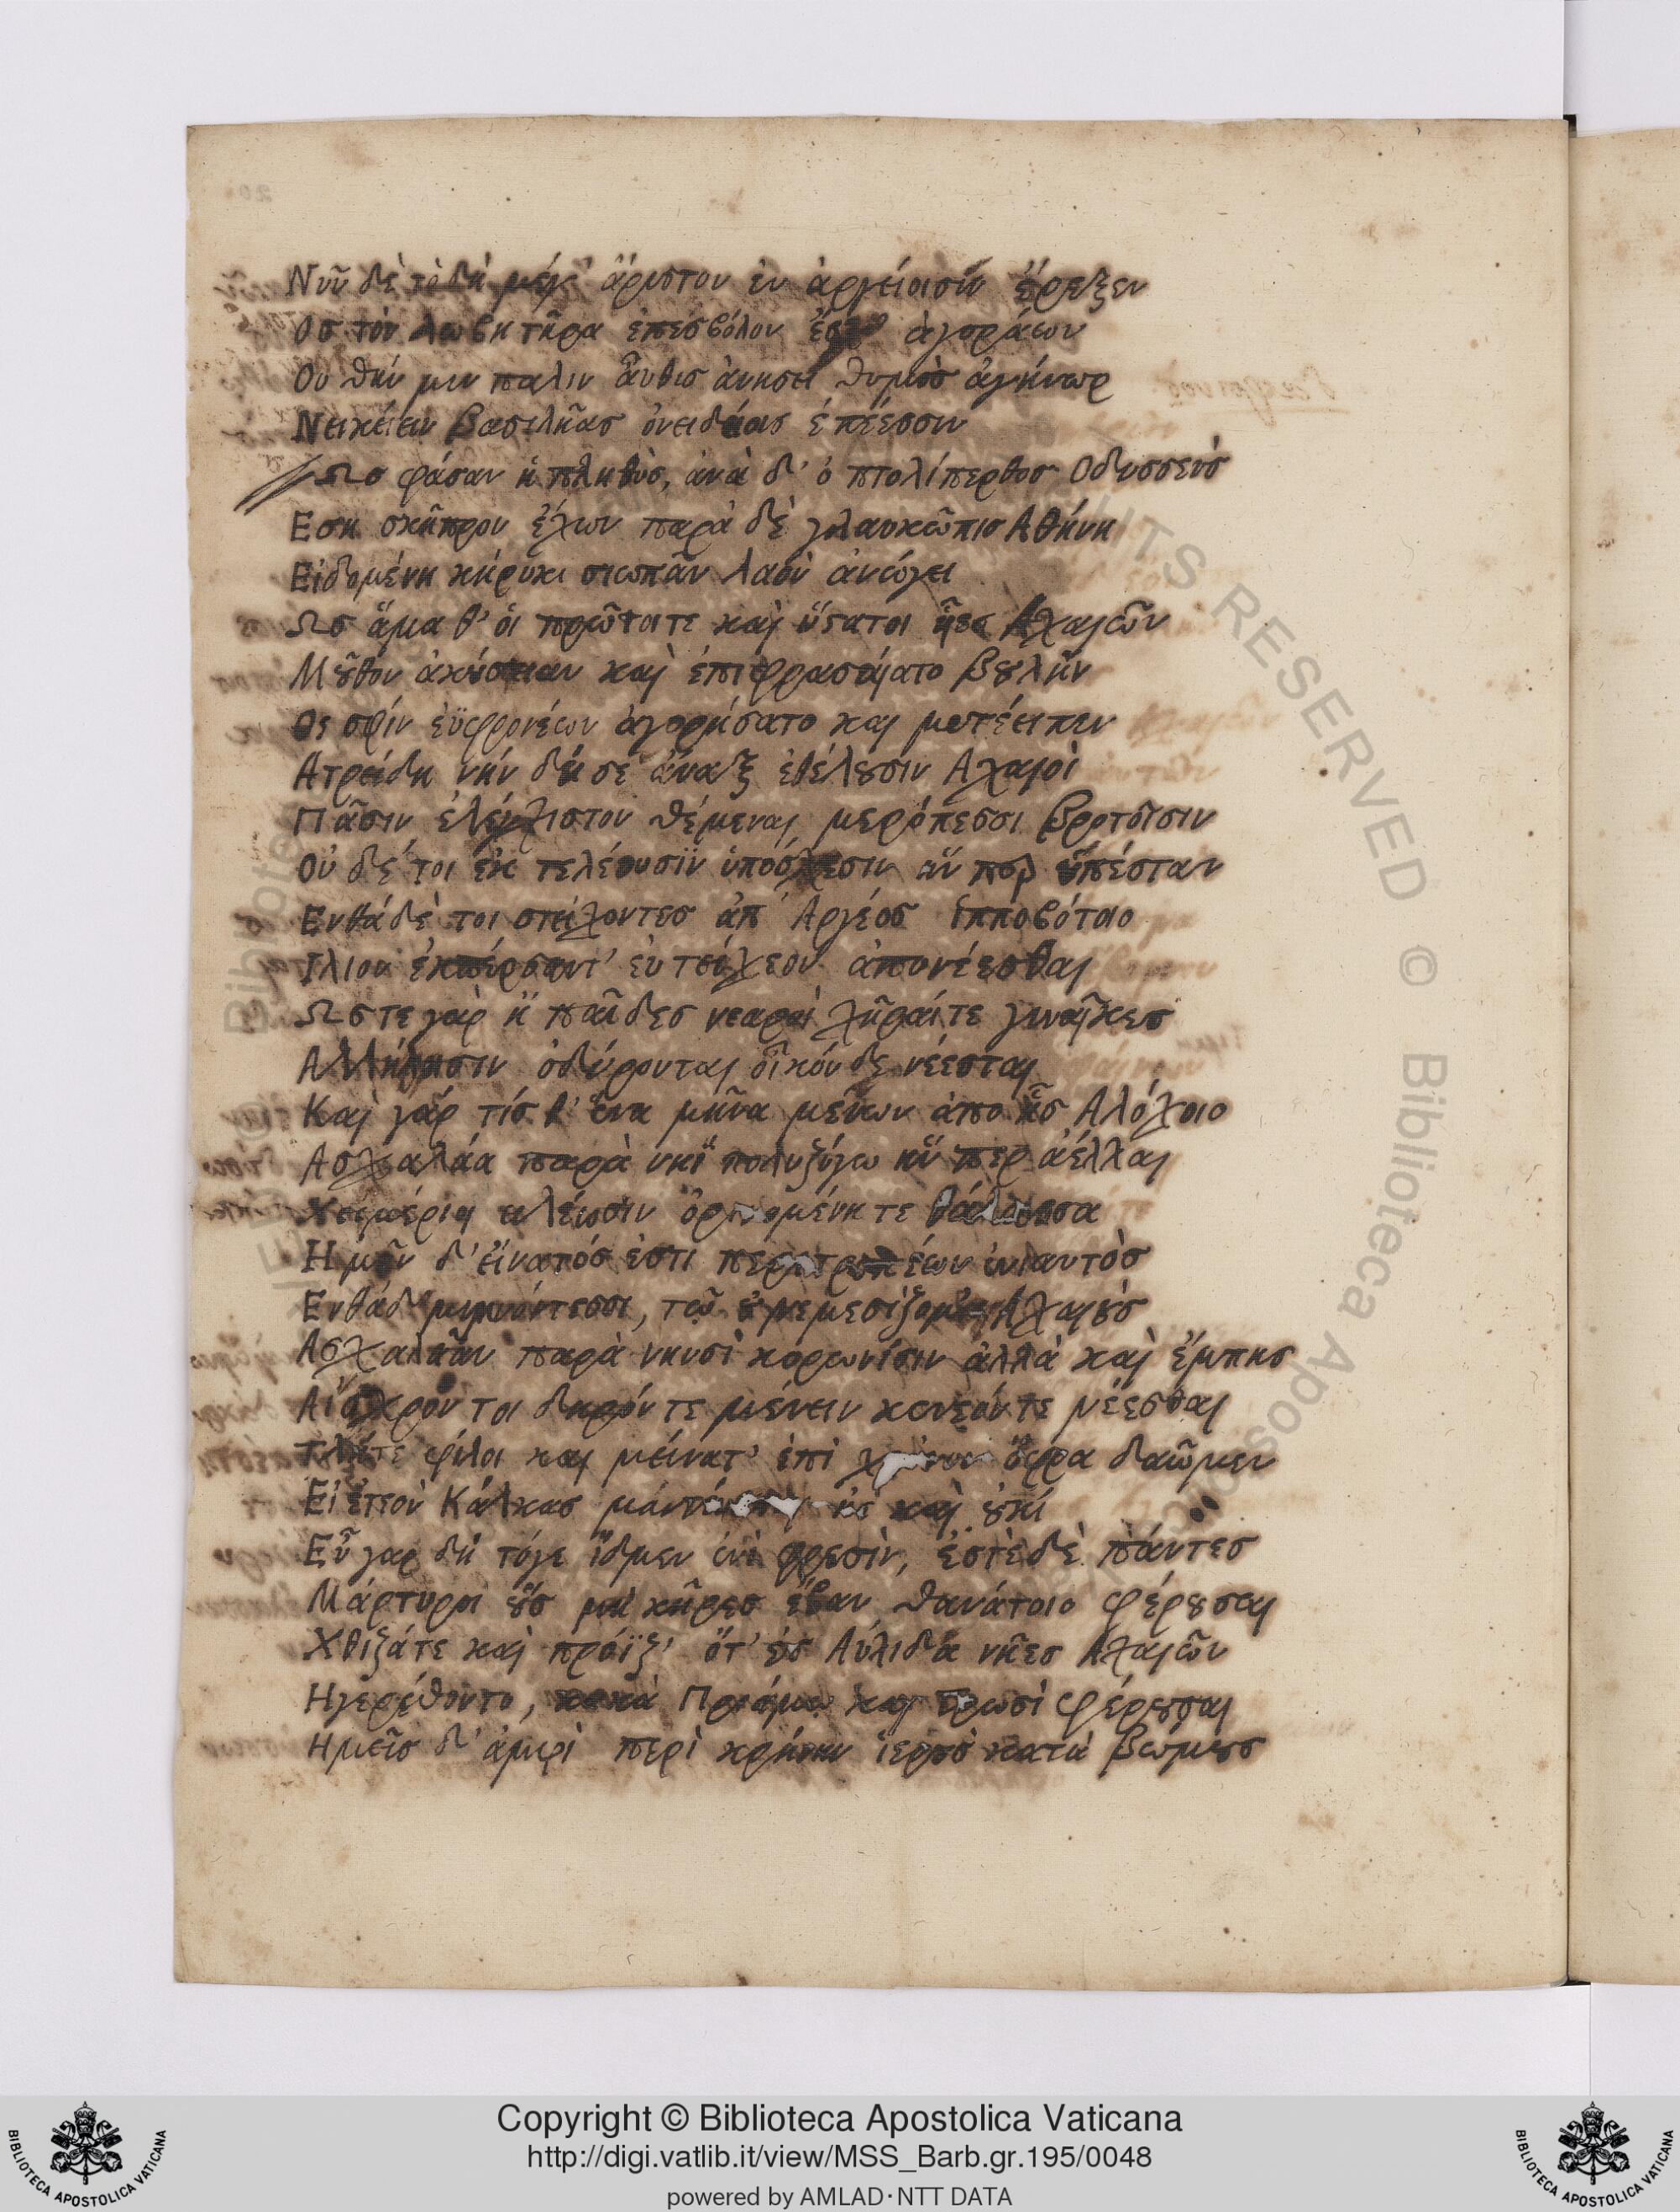 Νυῦ δὲ τὸ δὴ μέγ' ἄριστον ἐν ἀργείοισϊν ἔρεξεν
Οσ τὸν λωβητῆρα ἐπεσβόλον ἀγοράων
Ου θήν μιν παλιν ἆυθισ ἀνησει θυμὸσ ἀγήνωρ
Νεικέιειν βασιλῆασ ὀνειδέιοισ ἐπέεσσιν
Ωσ φάσαν ἡ πληθὺσ, ἀνὰ δ' ὁ πτολίπερθοσ Οδυσσεὺσ
Εση σκῆπρον ἔχων παρὰ δὲ γλαυκῶπισ Αθήνη
Εἰδομένη κήρυκι σιωπᾶν λαὸν ἀνώγει
Ωσ ἅμα θ' ὁι πρῶτοιτε καὶ ὕϛατοι ῆεσ Αχαιῶν
Μῦθον ἀκούσειαν καὶ ἐπιφρασαίατο βȣλὴν
Ος σφὶν ἐϋφρονέων ἀγορήσατο και μετέειπεν
Ατρείδη νήν δή σε ἄναξ ἐθέλȣσιν Αχαιοὶ
Πᾶσιν ἐλέγχιστον θέμεναι μερόπεσσι βροτοῖσιν
Οὐ δέ τοι ἐκ τελέουσϊν ὑπόσχεσιν ἥν περ ὕπέσταν
Ενθάδὲ τοι στείχοντεσ ἀπ' Αργέοσ ἱπποβότοιο
Ιλιον ἐκπέρσαντ' ἐυ τείχεον ἀπονέεσθαι
Ωστε γὰρ ἢ παῖδεσ νεαροὶ χῆραίτε γυναῖκεσ
Αλλήλησιν ὀδύρονται οἶκόνδε νέεσται
Καὶ γάρ τίσ θ' ἕνα μῆνα μένων ἀπο ἧσ Αλόχοιο
Ασχαλάα παρὰ νηῒ πολυζύγω ἥν περ ἀέλλαι
Χειμέριαι ειλέωσιν ὀρινομένη τε θάλασσα
Ημῖν δ' εἴνατόσ ἐστι περιτροπέων ἐνιαυτὸσ
Ενθάδε μιμνόντεσσι, τῷ ȣ νεμεσίζομαι Αχαιȣ̀σ
Ασχαλᾶαν παρὰ νηυσὶ κορωνίσιν ἀλλὰ καὶ ἔμπησ
Αἴσχρον τοι δηρόν τε μένειν κενεόν τε νέεσθαι
Τλῆτε φίλοι και μείνατ' ἐπὶ χρόνον ὄφρα δαῶμεν
Εἰ ἐτεὸν Κάλχασ μαντέυεται ἠὲ καὶ ȣκί
Εὖ γαρ δὴ τόγε ἴδμεν ἐνὶ φρεσὶν, ἐστὲ δὲ πάντεσ
Μάρτυροι ȣ̓́σ μὴ κῆρεσ ἔβαν θανάτοιο φέρȣσαι
Χθιζάτε καὶ πρόϊζ' ὅτ' ἐσ Αὐλιδα νῆεσ Αχαιῶν
Ηγερέθοντο, κακὰ Πριάμω και τρωσὶ φέρȣσαι
Ημεῖσ δ' ἀμφὶ περὶ κρήνην ἱερȣ̀σ κατὰ βωμȣσ
Copyright © Biblioteca Apostolica Vaticana
http://digi.vatlib.it/view/MSS_Barb.gr.195/0048
powered by AMLAD·NTT DATA